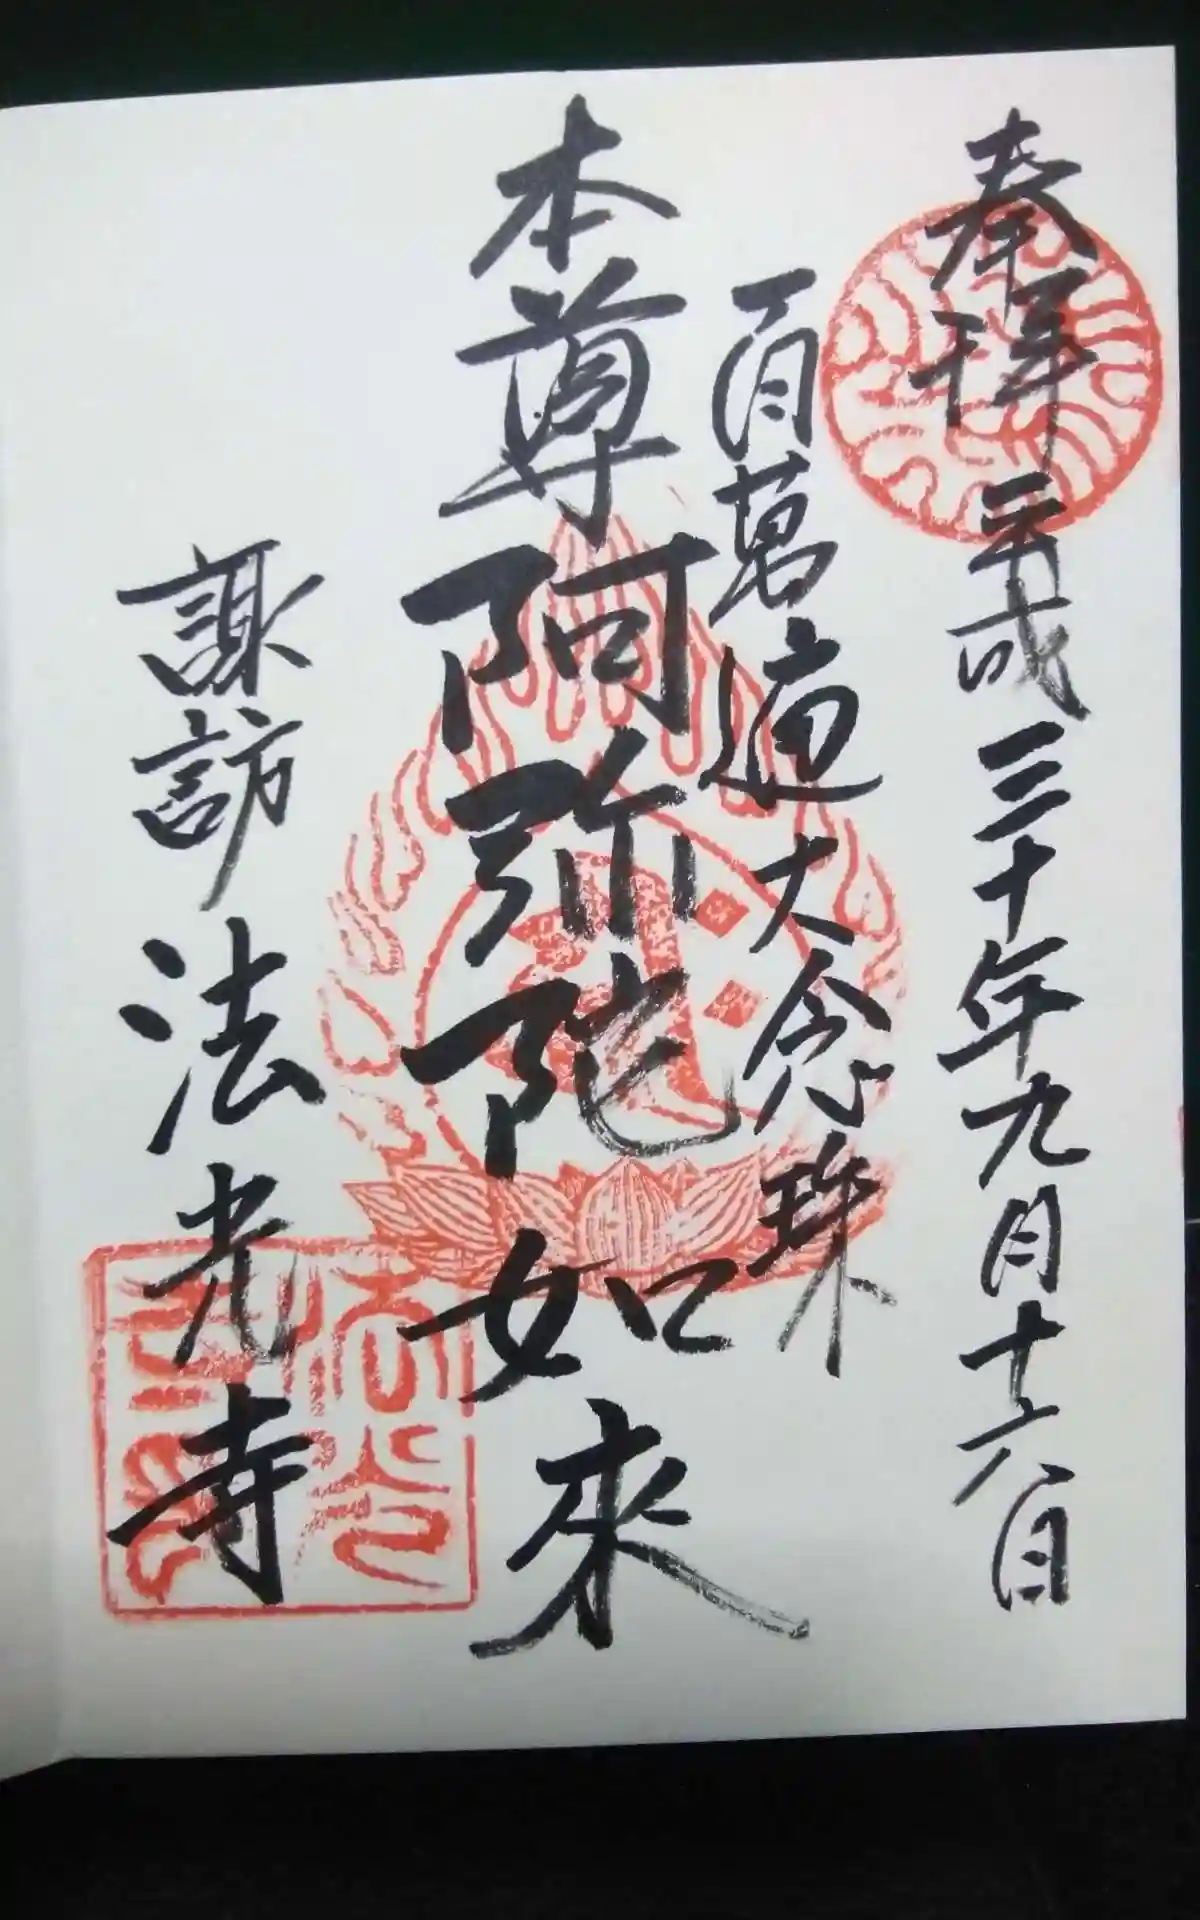 奉拝 平成三十年九月十六日
百萬遍大念珠
本尊阿弥陀如來
諏訪 法光寺